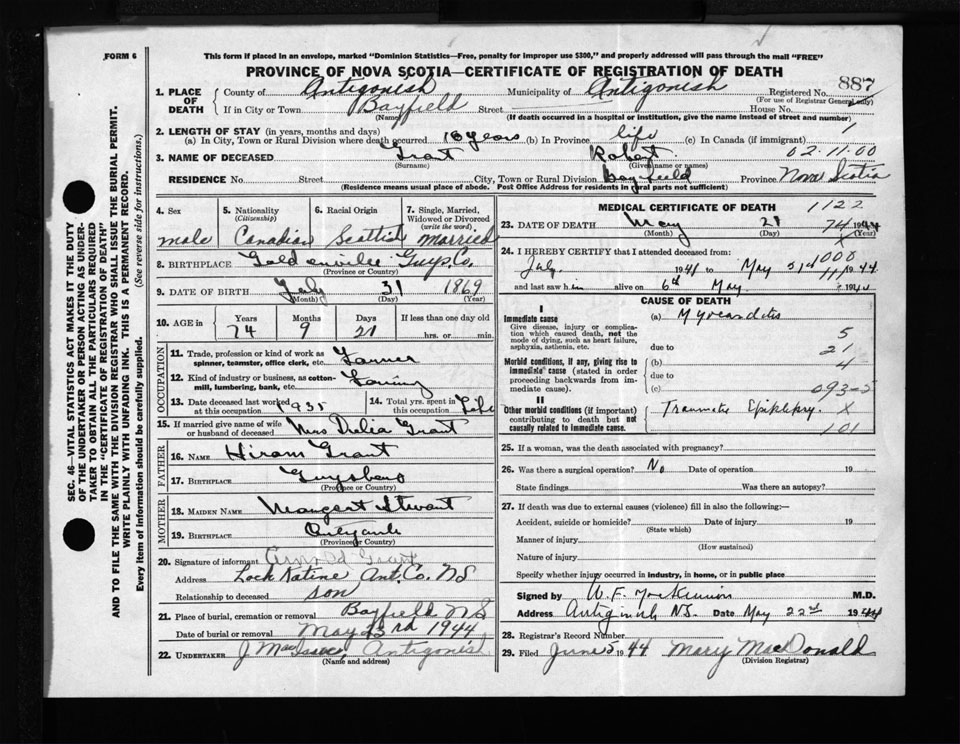 FORM 6
This form if placed in an envelope, marked "Dominion Statistics—Free, penalty for improper use $300," and properly addressed will pass through the mail "FREE"
PROVINCE OF NOVA SCOTIA—CERTIFICATE OF REGISTRATION OF DEATH
887
1. PLACE OF DEATH County of Antigonish Municipality of Antigonish Registered No.
(For use of Registrar General only)
If in City or Town Bayfield Street House No.
(Name) (If death occurred in a hospital or institution, give the name instead of street and number)
2. LENGTH OF STAY (in years, months and days)
(a) In City, Town or Rural Division where death occurred 18 years (b) In Province life (c) In Canada (if immigrant) 1
3. NAME OF DECEASED Grant Robert 02-11-00
(Surname) (Given name or names)
RESIDENCE No. Street City, Town or Rural Division Bayfield Province Nova Scotia
(Residence means usual place of abode. Post Office Address for residents in rural parts not sufficient)
SEC. 46—VITAL STATISTICS ACT MAKES IT THE DUTY
OF THE UNDERTAKER OR PERSON ACTING AS UNDER-
TAKER TO OBTAIN ALL THE PARTICULARS REQUIRED
IN THE "CERTIFICATE OF REGISTRATION OF DEATH"
AND TO FILE THE SAME WITH THE DIVISION REGISTRAR WHO SHALL ISSUE THE BURIAL PERMIT.
WRITE PLAINLY WITH UNFADING INK. THIS IS A PERMANENT RECORD.
Every item of information should be carefully supplied. (See reverse side for instructions.)
4. Sex 5. Nationality (Citizenship) 6. Racial Origin 7. Single, Married, Widowed or Divorced (write the word)
male Canadian Scottish married
8. BIRTHPLACE Guys. Co.
(Province or Country)
9. DATE OF BIRTH July 31 1869
(Month) (Day) (Year)
10. AGE in Years Months Days If less than one day old
74 9 21 hrs. or min.
OCCUPATION
11. Trade, profession or kind of work as spinner, teamster, office clerk, etc. Farmer
12. Kind of industry or business, as cotton-mill, lumbering, bank, etc. Farming
13. Date deceased last worked at this occupation 1935 14. Total yrs. spent in this occupation Life
15. If married give name of wife or husband of deceased Mrs Delia Grant
FATHER
16. NAME Hiram Grant
17. BIRTHPLACE Guysboro
(Province or Country)
MOTHER
18. MAIDEN NAME Margert Stewart
19. BIRTHPLACE
(Province or Country)
20. Signature of informant Arnold Grant
Address Loch Katrine Ant. Co. NS
Relationship to deceased son
21. Place of burial, cremation or removal Bayfield N.S
Date of burial or removal May 23rd 1944
22. UNDERTAKER J MacIsaac Antigonish
(Name and address)
MEDICAL CERTIFICATE OF DEATH 1122
23. DATE OF DEATH May 21 1944
(Month) (Day) (Year)
24. I HEREBY CERTIFY that I attended deceased from:
July 1941 to May 1944
and last saw him alive on 6th May 1944
CAUSE OF DEATH
I
Immediate cause
Give disease, injury or complication which caused death, not the mode of dying, such as heart failure, asphyxia, asthenia, etc.
(a) Myocarditis 5
due to 21
Morbid conditions, if any, giving rise to immediate cause (stated in order proceeding backwards from immediate cause).
(b) 4
due to
(c) 093-5
II
Other morbid conditions (if important) contributing to death but not causally related to immediate cause.
Traumatic Epilepsy. X
101
25. If a woman, was the death associated with pregnancy?
26. Was there a surgical operation? No Date of operation 19
State findings Was there an autopsy?
27. If death was due to external causes (violence) fill in also the following:—
Accident, suicide or homicide? Date of injury 19
(State which)
Manner of injury
(How sustained)
Nature of injury
Specify whether injury occurred in industry, in home, or in public place
Signed by W. F. MacKinnon M.D.
Address Antigonish N.S. Date May 22nd 1944
28. Registrar's Record Number
29. Filed June 5 1944 Mary MacDonald
(Division Registrar)